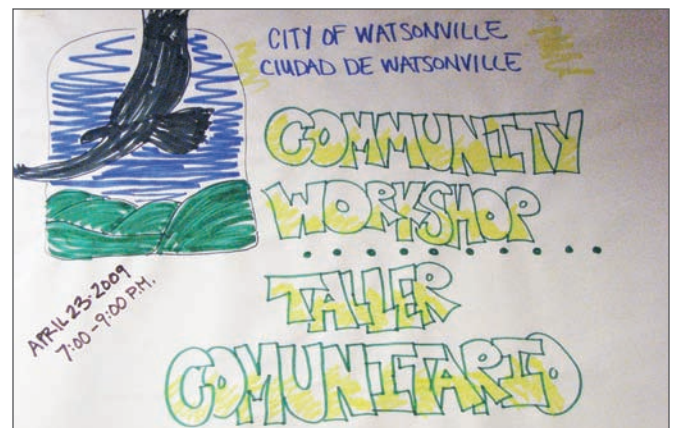 CITY OF WATSONVILLE
CIUDAD DE WATSONVILLE
COMMUNITY
WORKSHOP
TALLER
COMUNITARIO
APRIL 23·2009
7:00-9:00 P.M.